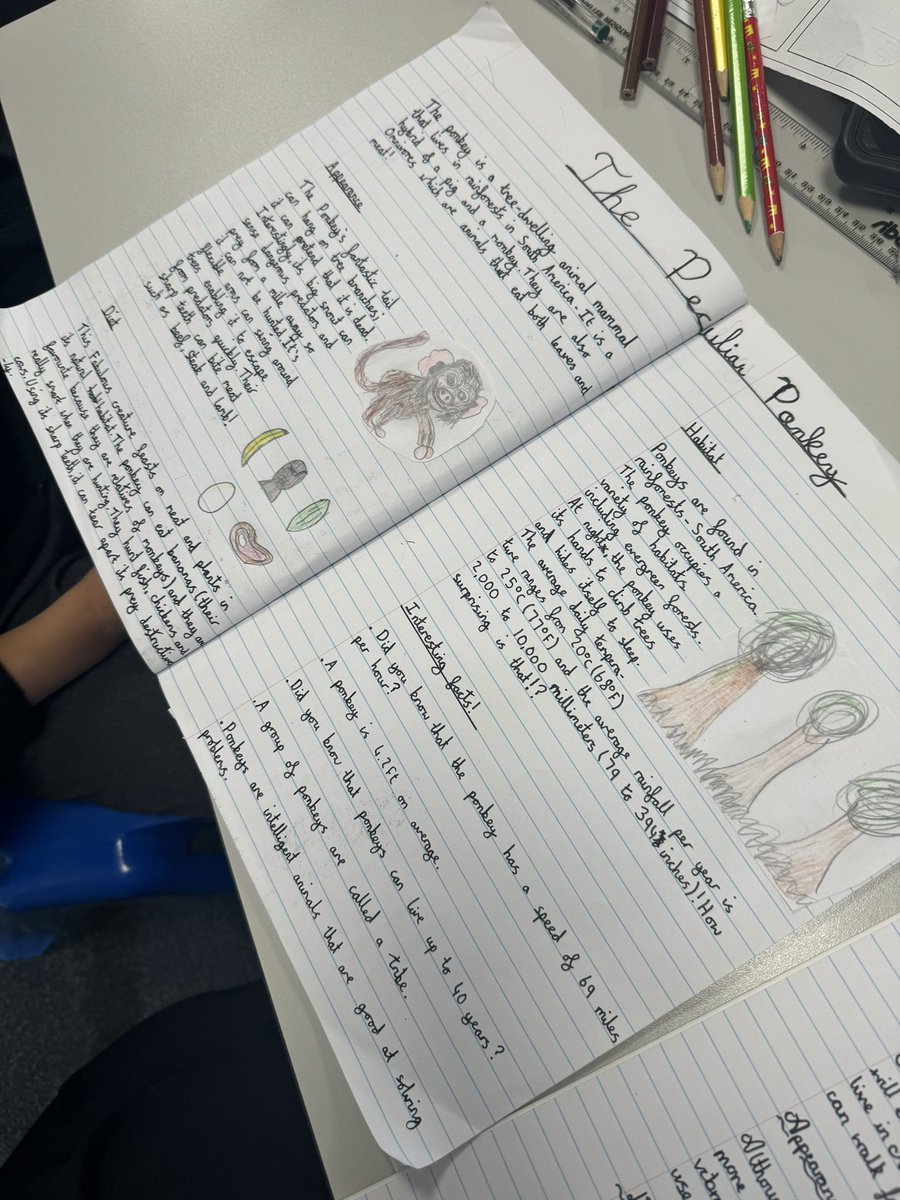 The Peculiar Ponkey
The ponkey is a tree-dwelling animal mammal
that lives in rainforests in South America. It is a
hybrid of a pig and a monkey. They are also
Omnivores which are animals that eat both leaves and
meat!
Appearance
The Ponkey's fantastic tail
can hang on tree branches!
it can pretend that it is dead.
Interestingly, its big snout can
sense dangerous predators and
prey from a mile away so
it can not be hunted. It's
flexible arms can swing around
trees enabling it to escape
from predators quickly. Their
sharp teeth can bite meat
such as beef, steak and lamb!
Diet
This fabulous creature feasts on meat and plants in
its natural habitat. The ponkey can eat bananas (their
favourite because they are relatives of monkeys) and they are
really smart when they are hunting. They hunt fish, chickens and
cows. Using its sharp teeth, it can tear apart its prey
Habitat
Ponkeys are found in
rainforests - South America
The ponkey occupies a
variety of habitats,
including evergreen forests.
At night, the ponkey uses
its hands to climb trees
and hides itself to sleep.
The average daily tempera-
ture ranges from 20°C (68°F)
to 25°C (77°F) and the average rainfall per year is
2,000 to 10,000 millimeters (79 to 394 inches)! How
surprising is that!?
Interesting facts!
• Did you know that the ponkey has a speed of 69 miles
per hour?
• A ponkey is 4.2Ft on average.
• Did you know that ponkeys can live up to 40 years?
• A group of ponkeys are called a tribe.
• Ponkeys are intelligent animals that are good at solving
problems.
will
live in
can walk
Appearan
Althou
more
use